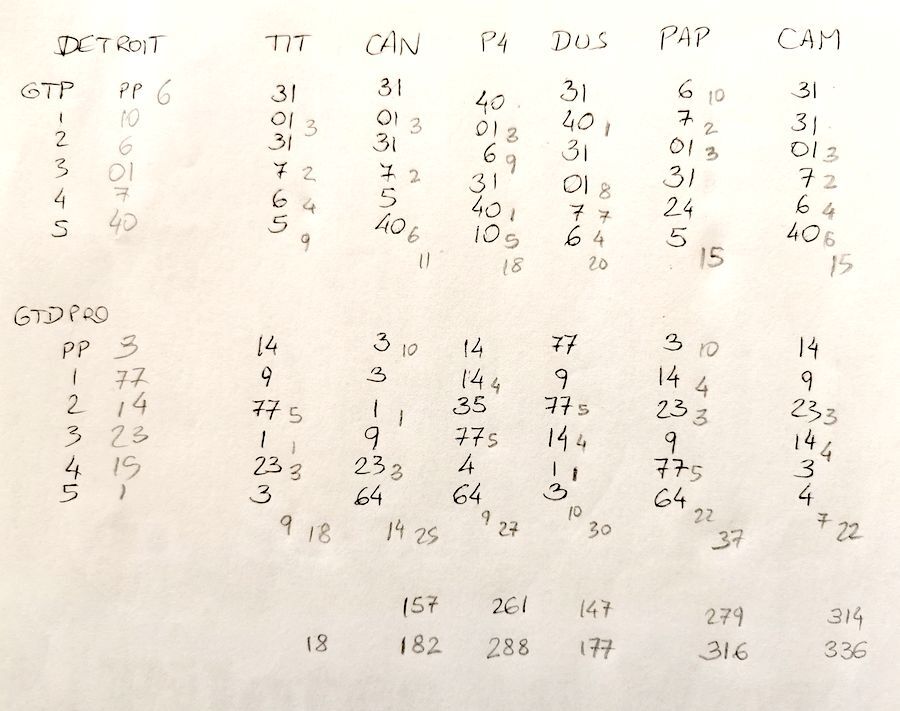 DETROIT TIT CAN P4 DUS PAP CAM
GTP PP 6 31 31 40 31 6 10 31
1 10 01 3 01 3 01 8 40 1 7 2 31
2 6 31 31 6 9 31 01 3 01 3
3 01 7 2 7 2 31 01 8 31 7 2
4 7 6 4 5 40 1 7 7 24 6 4
5 40 5 40 6 10 5 6 4 5 40 6
9 11 18 20 15 15
GTDPRO
PP 3 14 3 10 14 77 3 10 14
1 77 9 3 14 4 9 14 4 9
2 14 77 5 1 1 35 77 5 23 3 23 3
3 23 1 1 9 77 5 14 4 9 14 4
4 15 23 3 23 3 4 1 1 77 5 3
5 1 3 64 64 3 64 4
9 18 14 25 9 27 10 30 22 37 7 22
157 261 147 279 314
18 182 288 177 316 336